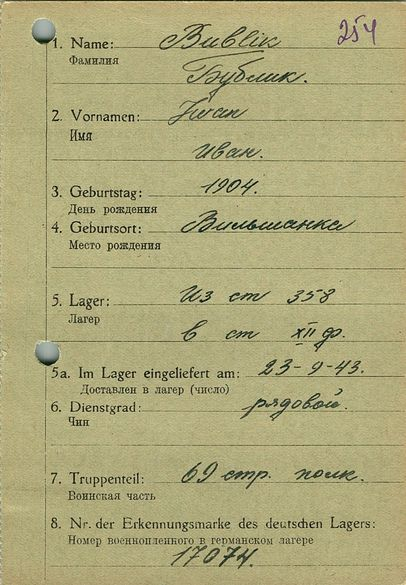 254
1. Name: Bublik
Фамилия
Бублик.
2. Vornamen: Iwan
Имя
Иван.
3. Geburtstag: 1904.
День рождения
4. Geburtsort: Вильшанка
Место рождения
5. Lager: Из ст 358
Лагер
в ст XII ф.
5a. Im Lager eingeliefert am: 23-9-43.
Доставлен в лагер (число)
6. Dienstgrad: рядовой.
Чин
7. Truppenteil: 69 стр. полк.
Воинская часть
8. Nr. der Erkennungsmarke des deutschen Lagers:
Номер военнопленного в германском лагере
17074.